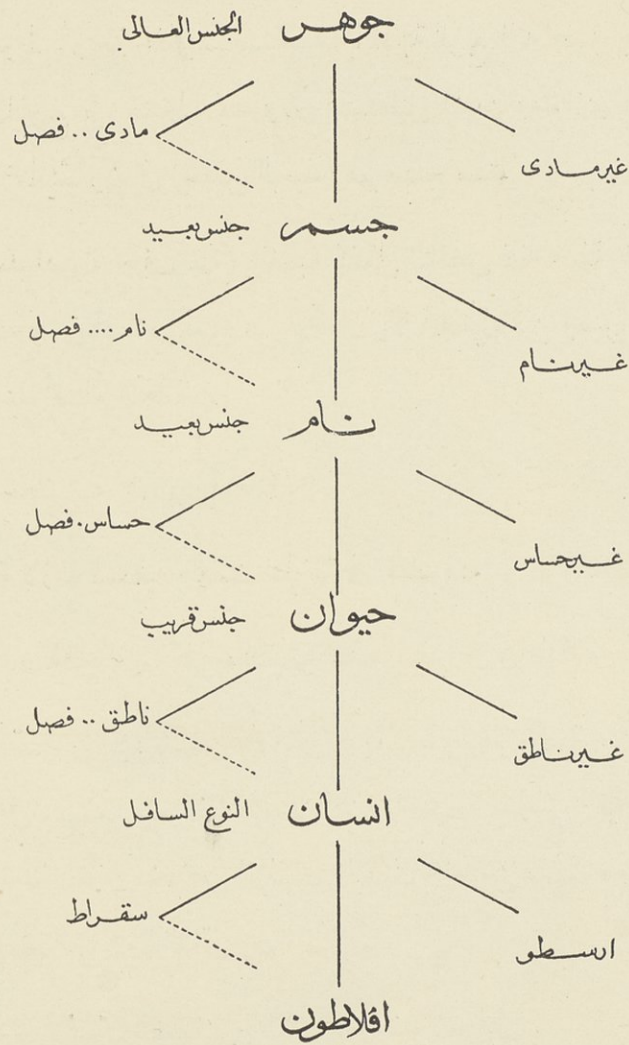 جوهر الجنس العالى
مادى .. فصل
غير مادى
جسم جنس بعيد
نام .... فصل
غير نام
نام جنس بعيد
حساس . فصل
غير حساس
حيوان جنس قريب
ناطق .. فصل
غير ناطق
انسان النوع السافل
سقراط
ارسطو
افلاطون